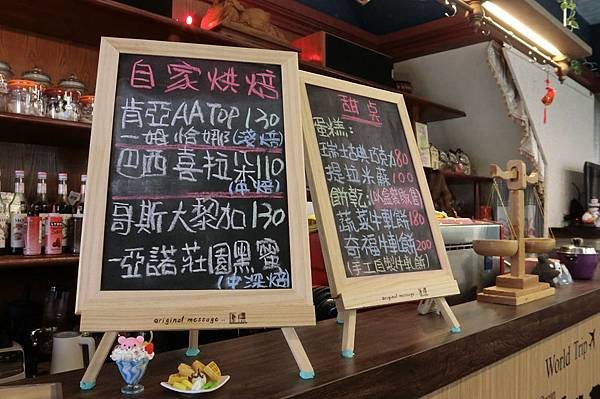 自家烘焙
肯亞AA TOP 130
一姆恰娜(淺焙)
巴西喜拉朵110
(中焙)
哥斯大黎加130
一亞諾莊園黑蜜
(中深焙)
original message
甜点
蛋糕:
瑞士古典巧克力80
提拉米蘇100
餅乾:
蔬菜牛軋餅180
奇福牛軋餅200
(手工自製牛軋餅)
original message
World Trip